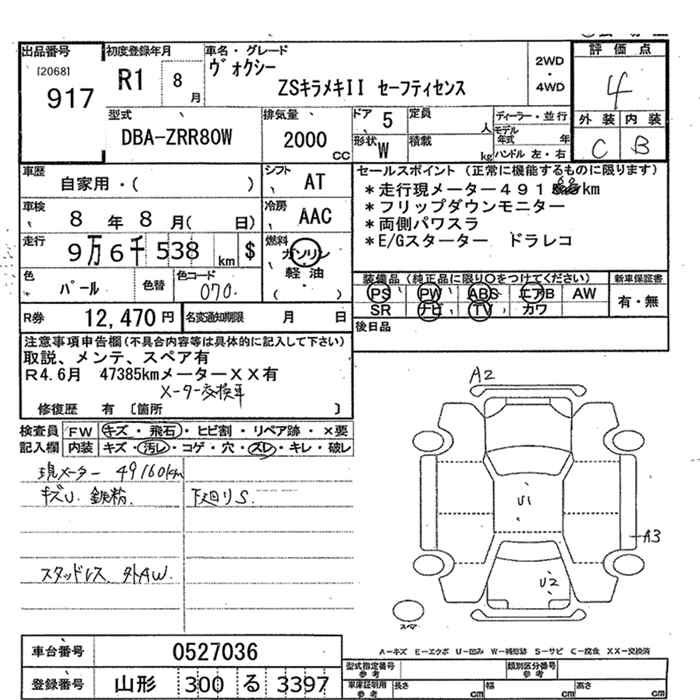 出品番号 初度登録年月 車名・グレード 評価点
[2068] ヴォクシー 2WD
917 R1 8月 ・ 4
ZSキラメキII セーフティセンス 4WD
型式 排気量 ドア 5 定員 人 ディーラー・並行 外装 内装
DBA-ZRR80W 2000CC 形状 W 積載 kg モデル年式 年 C B
ハンドル 左・右
車歴 シフト セールスポイント (正常に機能するものに限ります)
自家用・( ) AT *走行現メーター491 km
車検 冷房 *フリップダウンモニター
8年8月( 日) AAC *両側パワスラ
走行 燃料 *E/Gスターター ドラレコ
9万6千538km $ ガソリン
軽油
( )
色 色替 色コード 装備品 (純正品に限り○をつけてください) 新車保証書
パール 070 PS PW ABS エアB AW 有・無
SR ナビ TV カワ
R券 12,470円 名変通知期限 月 日 後日品
注意事項申告欄(不具合内容等は具体的に記入して下さい)
取説、メンテ、スペア有
R4.6月 47385kmメーターXX有
メーター交換車
修復歴 有 〔箇所 〕
A2
検査員 FW キズ・飛石・ヒビ割・リペア跡・×要
記入欄 内装 キズ・汚レ・コゲ・穴・スレ・キレ・破レ
現メーター 49160km
キズU. 鉄粉. 下廻りS.
U1
A3
スタッドレス 外AW.
U2
スペア
A-キズ E-エクボ U-凹み W-補修跡 S-サビ C-腐食 XX-交換済
車台番号 0527036
型式指定番号 参考 類別区分番号 参考
登録番号 山形 300 る 3397
車庫証明用 参考 長さ cm 幅 cm 高さ cm